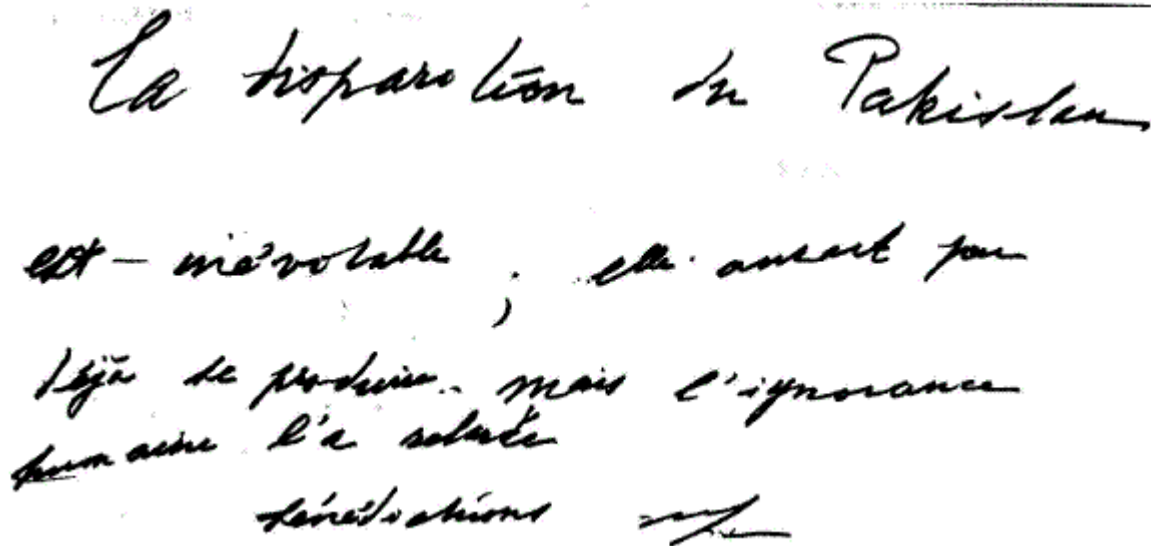 La disparition du Pakistan
est inévitable ; elle aurait pu
déjà se produire. mais l'ignorance
humaine l'a retardée
bénédictions